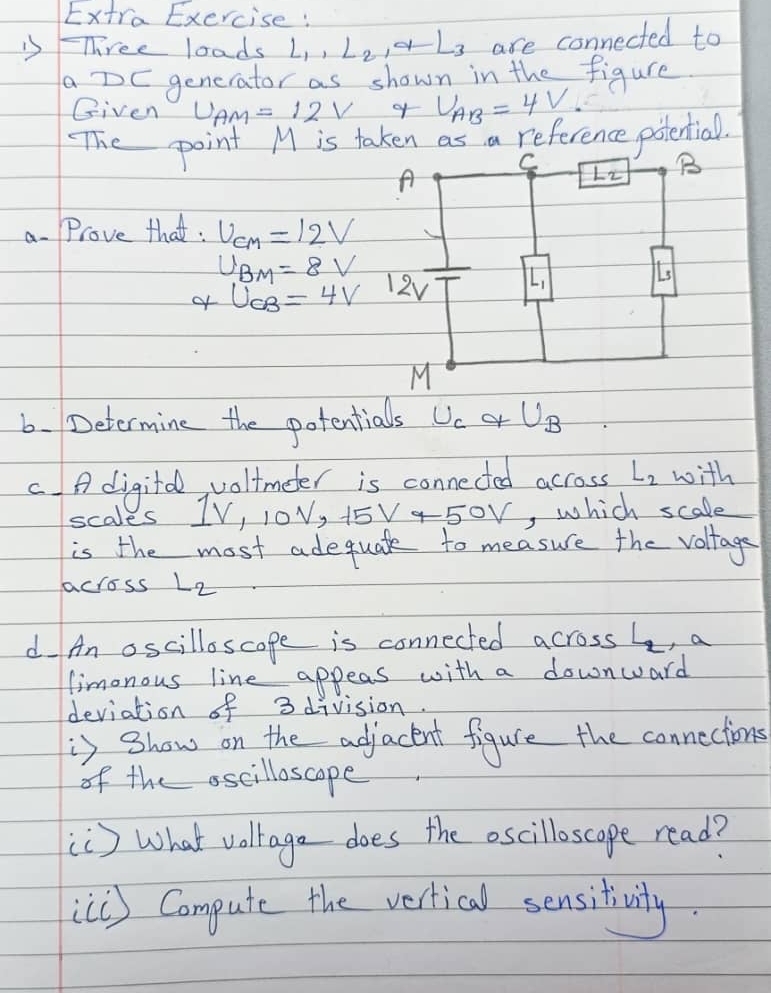 Extra Exercise :
1) Three loads L1, L2, & L3 are connected to
a DC generator as shown in the figure.
Given UAM = 12 V & UAB = 4 V.
The point M is taken as a reference potential.
A C L2 B
a- Prove that : UCM = 12V
UBM = 8 V
& UCB = 4V
12V L1 L3
M
b- Determine the potentials Uc & UB .
c- A digital voltmeter is connected across L2 with
scales 1V, 10V, 15V & 50V, which scale
is the most adequate to measure the voltage
across L2 .
d- An oscilloscope is connected across L2, a
limonous line appeas with a downward
deviation of 3 division .
i) Show on the adjacent figure the connections
of the oscilloscope .
ii) What voltage does the oscilloscope read?
iii) Compute the vertical sensitivity .